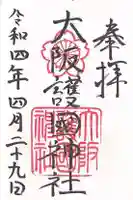 奉拝
大阪護國神社
令和四年四月二十九日